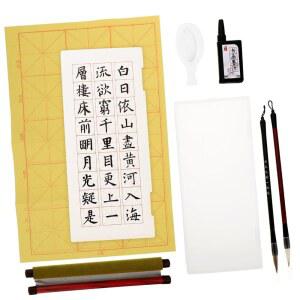 白日依山盡黃河入海
流欲窮千里目更上一
層樓床前明月光疑是